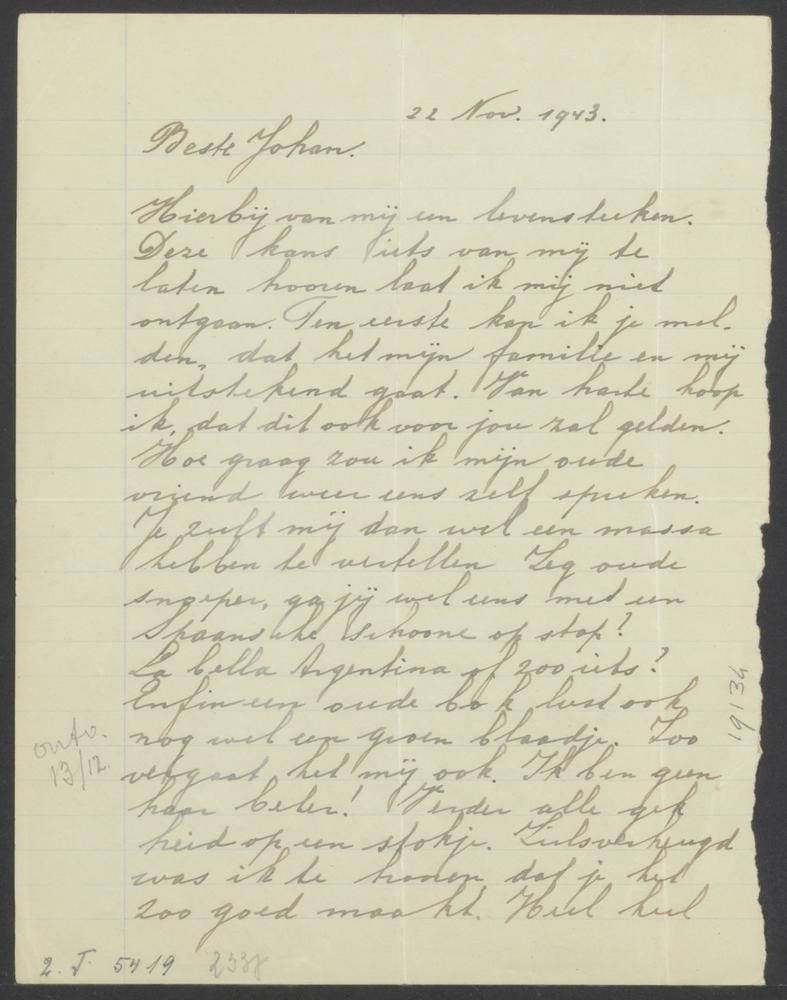 22 Nov. 1943.
Beste Johan.
Hierbij van mij een levensteeken.
Deze kans iets van mij te
laten hooren laat ik mij niet
ontgaan. Ten eerste kan ik je mel-
den, dat het mijn familie en mij
uitstekend gaat. Van harte hoop
ik, dat dit ook voor jou zal gelden.
Hoe graag zou ik mijn oude
vriend weer eens zelf spreken.
Je zult mij dan wel een massa
hebben te vertellen Zeg oude
snoeper, ga jij wel eens met een
Spaansche schoone op stap?
La bella Argentina of zoo iets?
Enfin een oude bok lust ook
nog wel een groen blaadje. Zoo
vergaat het mij ook. Ik ben geen
haar beter! Verder alle gek
heid op een stokje. Zielsverheugd
was ik te hooren, dat je het
zoo goed maakt. Heel heel
ontv.
13/12.
19134
2. J. 5419 2338